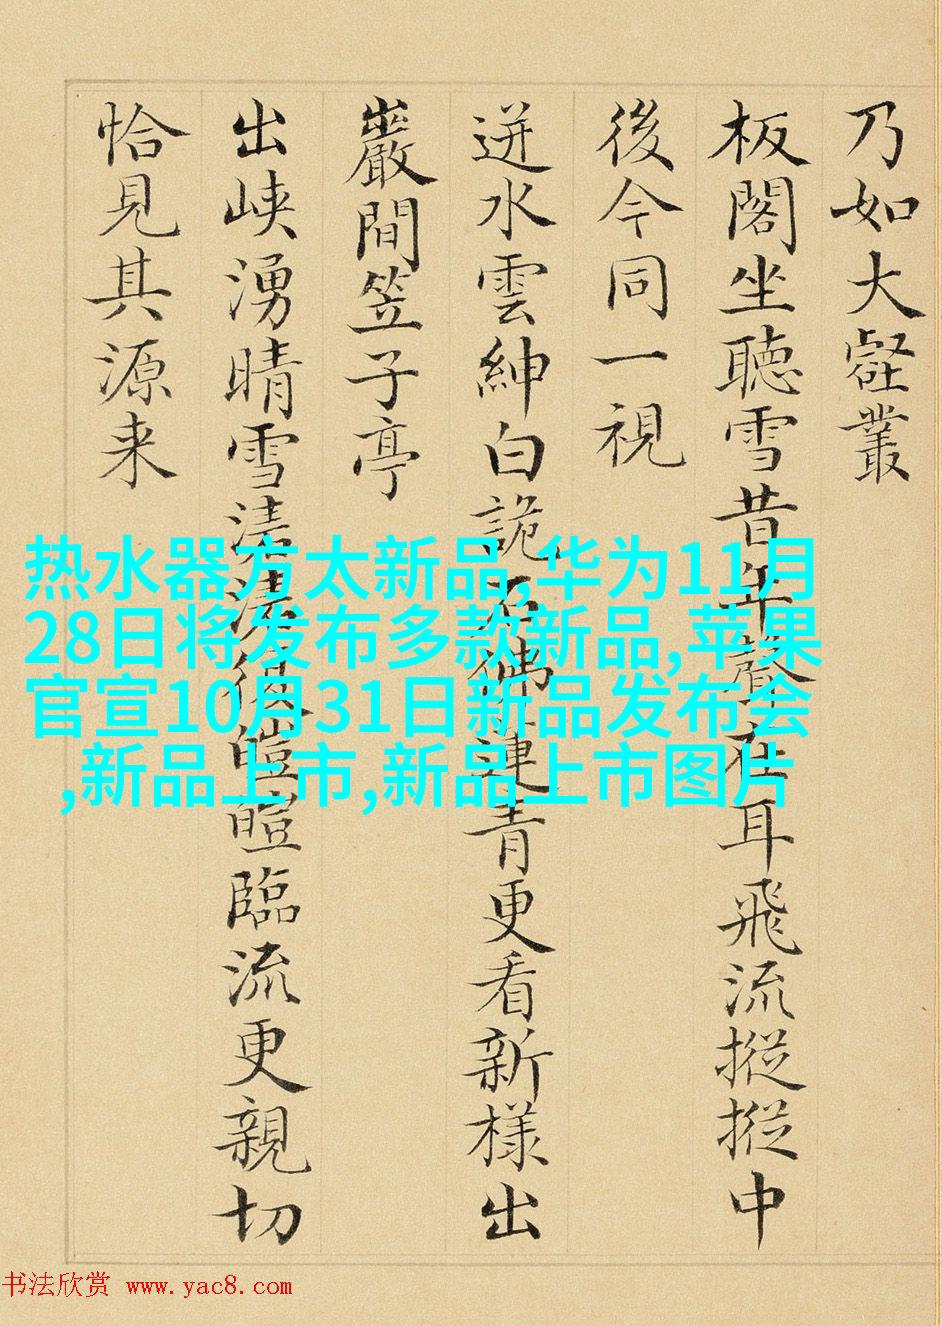 乃如大壑叢
板閣坐聽雪昔年聲在耳飛流摐摐中
後今同一視
迸水雲紳白詭石佛蓮青更看新樣出
巖間笠子亭
出峽湧晴雪淒淒復皚皚臨流更親切
恰見其源来
热水器方太新品,华为11月
28日将发布多款新品,苹果
官宣10月31日新品发布会
,新品上市,新品上市图片
书法欣赏 www.yac8.com